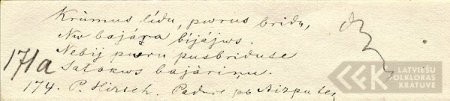 Krūmus līdu, purus bridu,
Nu bajāra bijājus.
171a
Nebij puru pusbriduse
Satakus bajāriņu.
174. P. Hirsch. Padure pr Aizputes
LATVIEŠU
FOLKLORAS
KRĀTUVE